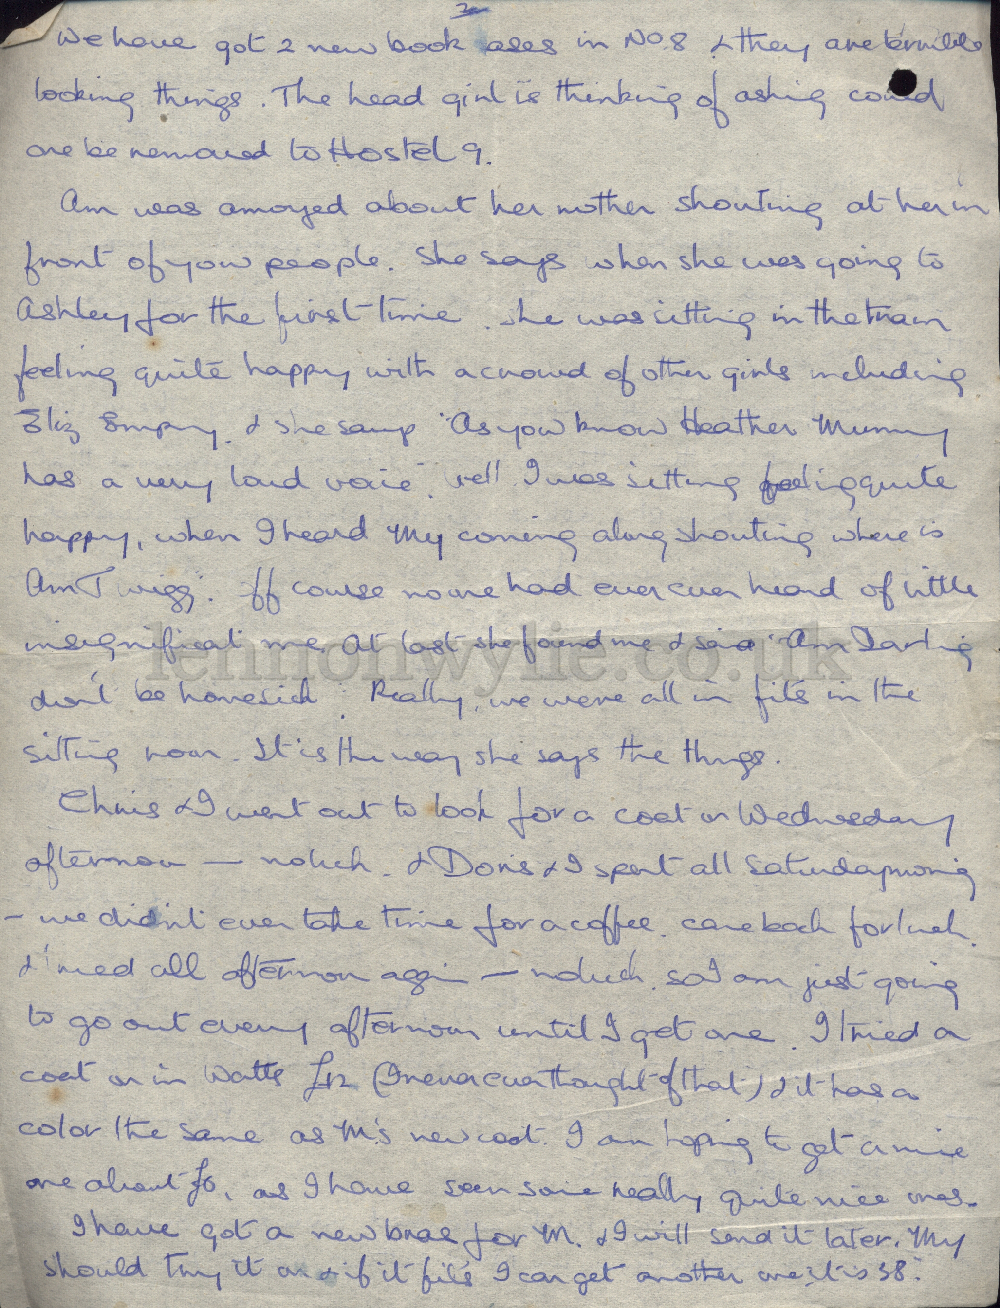 2
We have got 2 new book ases in No 8 & they are terrible
looking things. The head girl is thinking of asking could
one be removed to Hostel 9.
Am was annoyed about her mother shouting at her in
front of you people. She says when she was going to
Ashley for the first time she was sitting in the train
feeling quite happy with a crowd of other girls including
Eliz Empey. & she says "As you know Heather Mummy
has a very loud voice". well I was sitting feeling quite
happy, when I heard My coming along shouting where is
Am Twigg". Off course no one had ever ever heard of little
insignificant me. At last she found me & said "Am Darling
don't be homesick". Really, we were all in fits in the
sitting room. It is the way she says the things.
Chris & I went out to look for a coat on Wednesday
afternoon — no luck. & Doris & I spent all Saturday morning
- we didn't even take time for a coffee. came back for lunch.
& tried all afternoon again — no luck. so I am just going
to go out every afternoon until I get one. I tried a
coat on in Watts £12 (I never ever thought of that) & it has a
color the same as M's new coat. I am hoping to get a nice
one about £6, as I have seen some really quite nice ones.
I have got a new bras for M. & I will send it later. My
should try it on & if it fits I can get another one; it is 38".
lennonwylie.co.uk